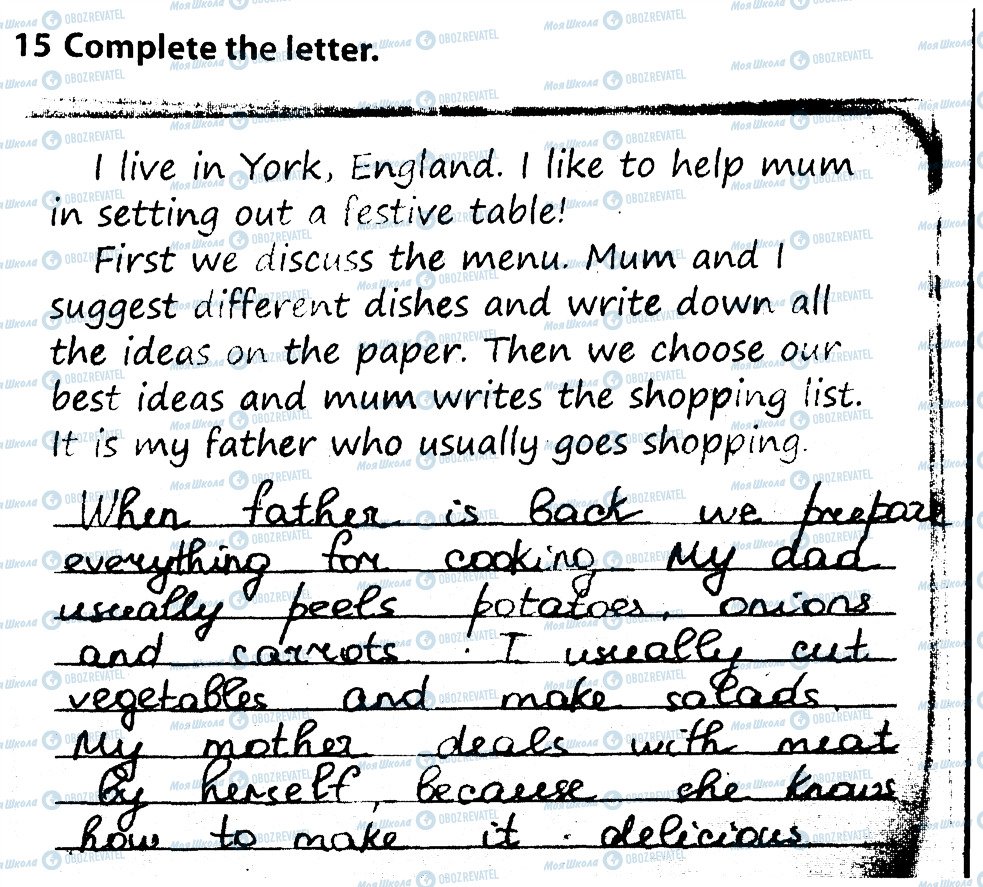 15 Complete the letter.
I live in York, England. I like to help mum
in setting out a festive table!
First we discuss the menu. Mum and I
suggest different dishes and write down all
the ideas on the paper. Then we choose our
best ideas and mum writes the shopping list.
It is my father who usually goes shopping.
When father is back we prepare
everything for cooking. My dad
usually peels potatoes, onions
and carrots. I usually cut
vegetables and make salads.
My mother deals with meat
by herself, because she knows
how to make it delicious
МояШкола OBOZREVATEL